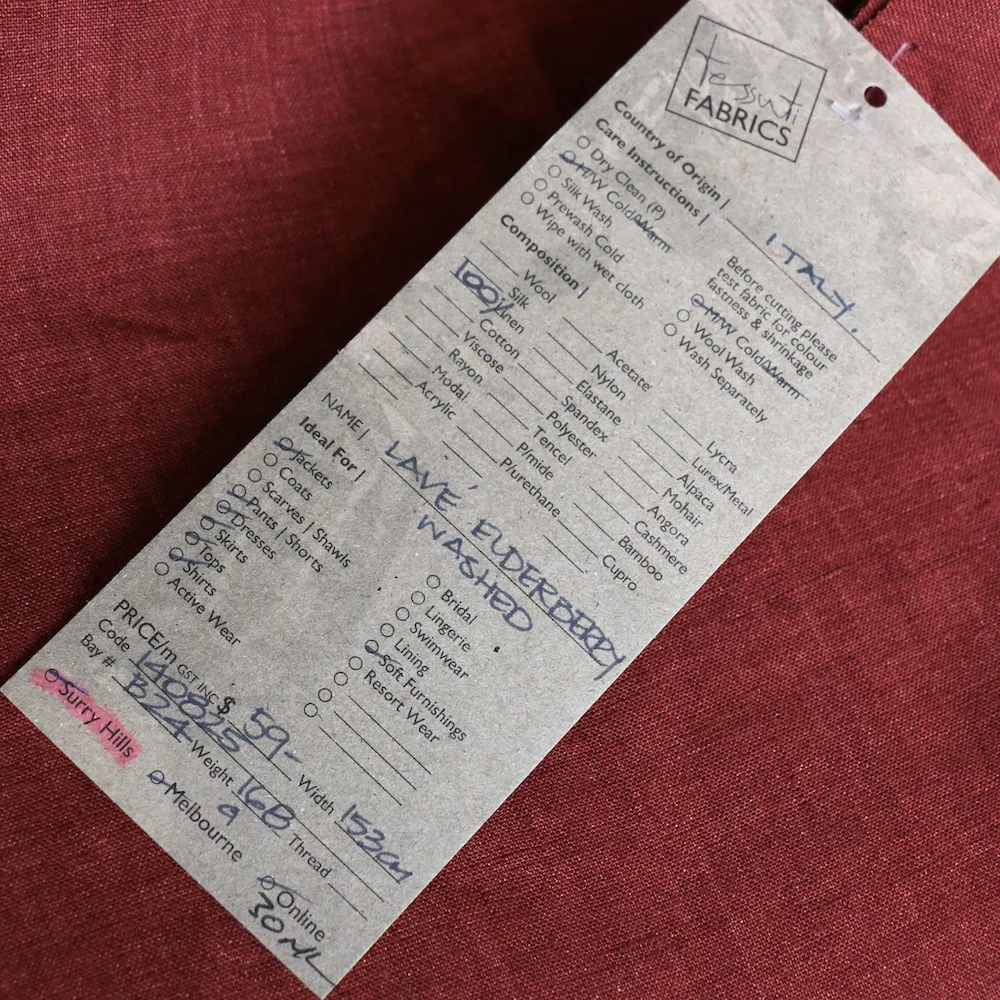 tessuti
FABRICS
Country of Origin | ITALY.
Care Instructions |
Dry Clean (P)
H/W Cold/Warm
Silk Wash
Prewash Cold
Wipe with wet cloth
Before cutting please
test fabric for colour
fastness & shrinkage
M/W Cold/Warm
Wool Wash
Wash Separately
Composition |
Wool
Silk
100% Linen
Cotton
Viscose
Rayon
Modal
Acrylic
Acetate
Nylon
Elastane
Spandex
Polyester
Tencel
P/mide
P/urethane
Lycra
Lurex/Metal
Alpaca
Mohair
Angora
Cashmere
Bamboo
Cupro
NAME | LAVÉ EUDERBERRY
WASHED
Ideal For |
Jackets
Coats
Scarves | Shawls
Pants | Shorts
Dresses
Skirts
Tops
Shirts
Active Wear
Bridal
Lingerie
Swimwear
Lining
Soft Furnishings
Resort Wear
PRICE/m GST INC $ 59-
Code 140825 Width 153cm
Bay # B24 Weight 168 Thread
9
Surry Hills Melbourne Online
30